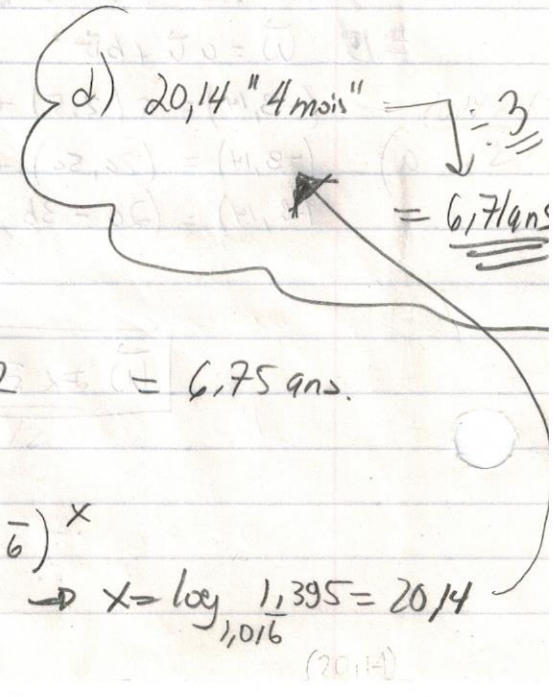 d) 20,14 "4 mois" ÷ 3
= 6,71 ans
2 = 6,75 ans.
6̄)ˣ
→ x = log₁,₀₁₆̄ 1,395 = 20,14
(20,14)